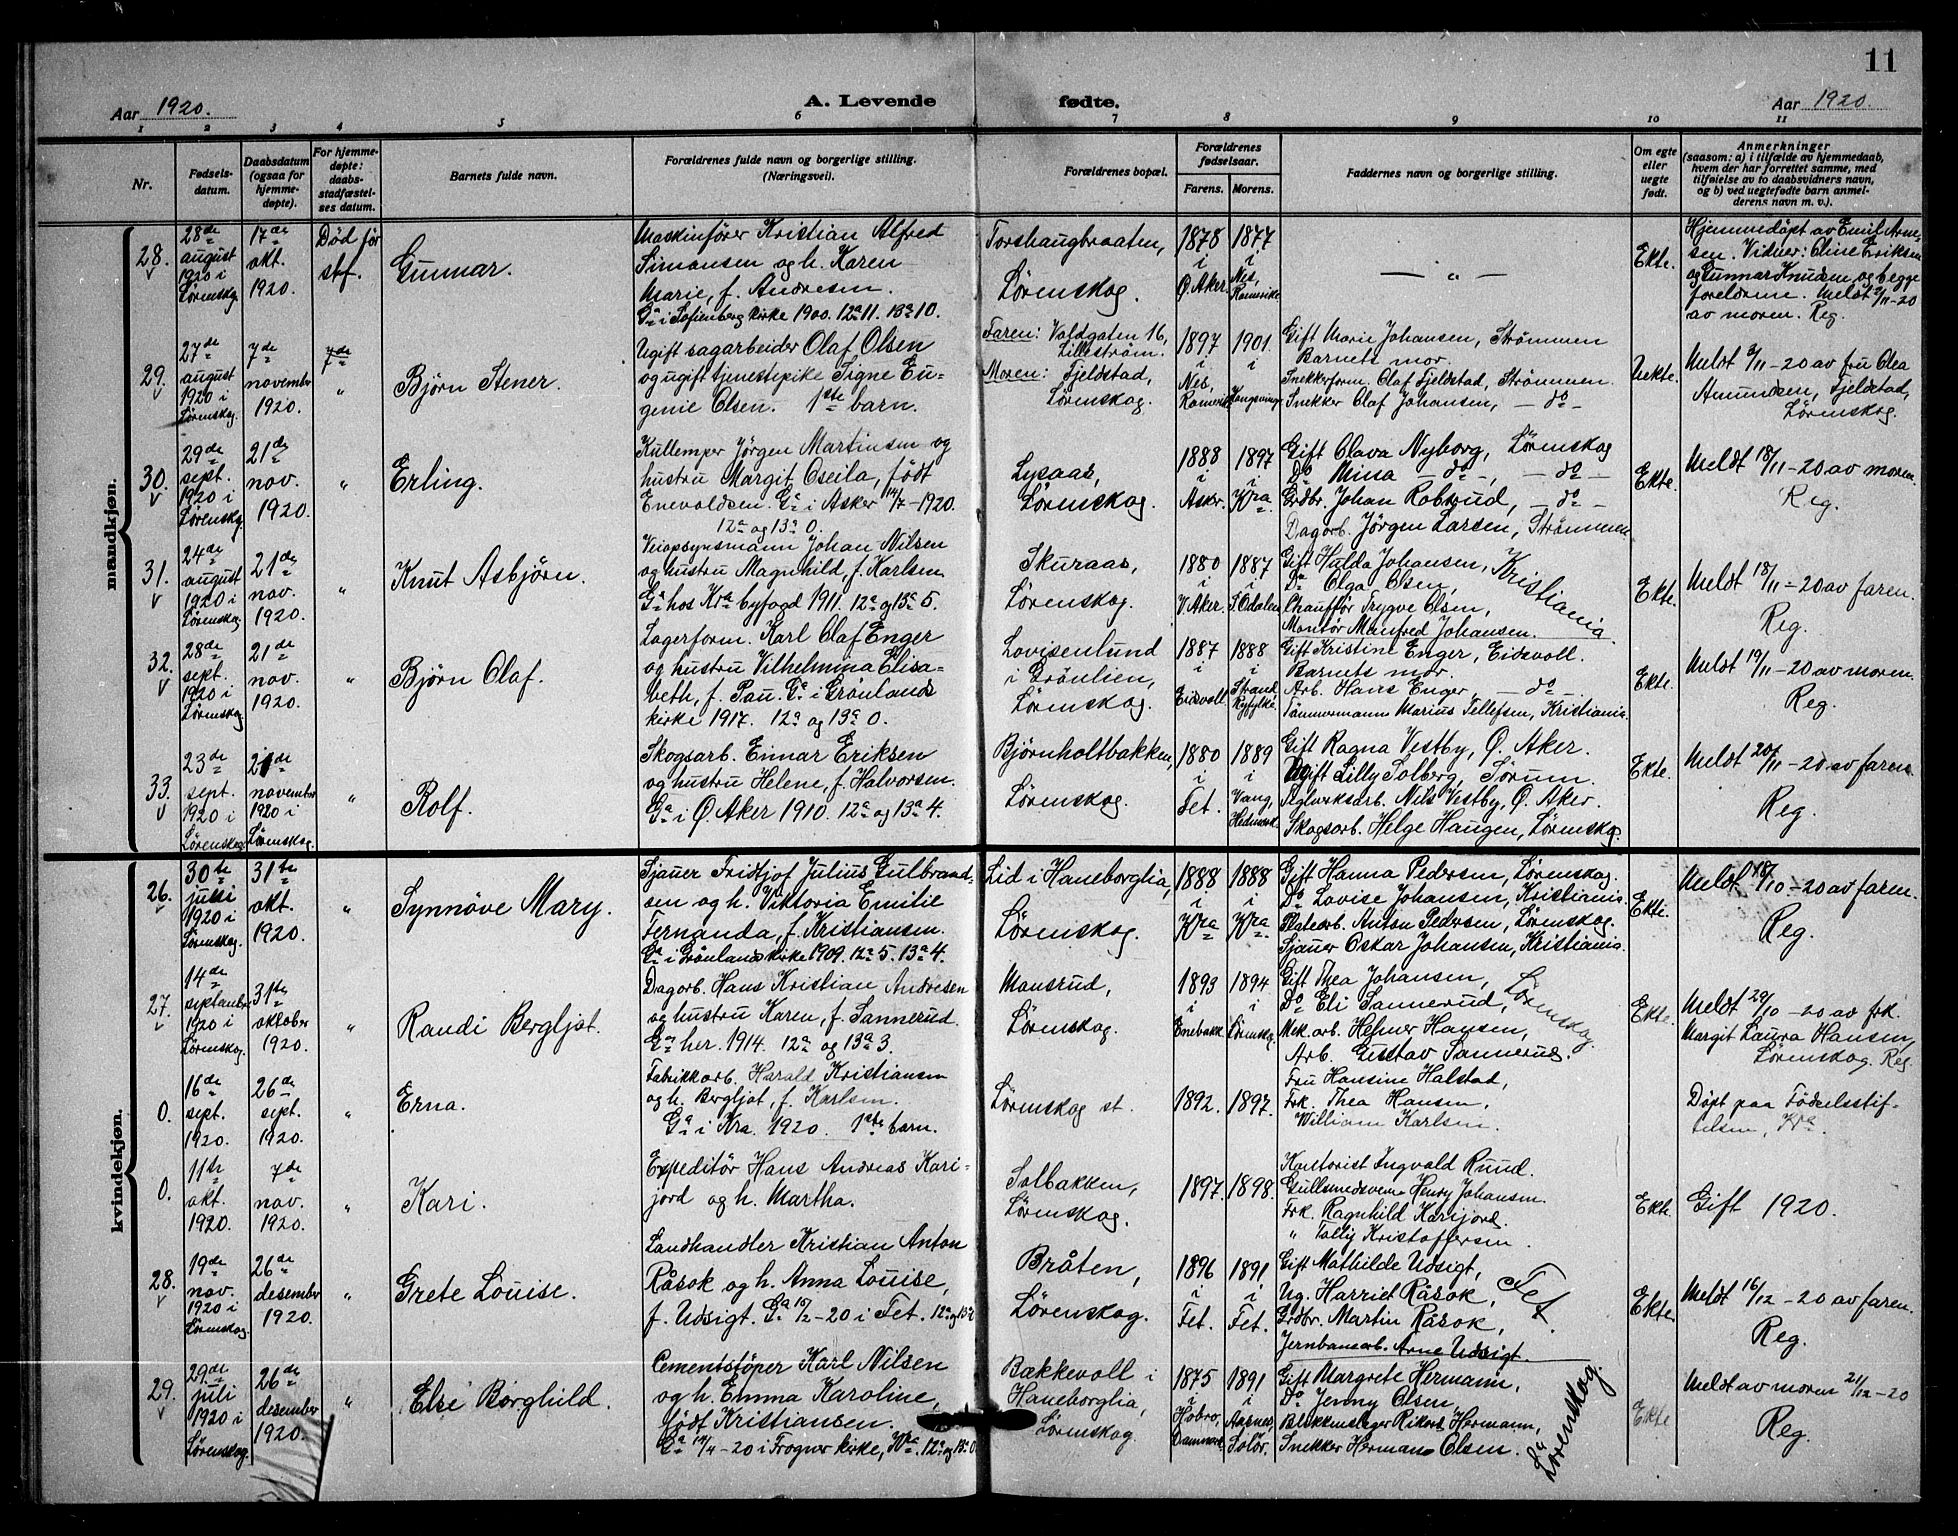 11
Aar 1920.
A. Levende fødte.
Aar 1920.
1 2 3 4 5 6 7 8 9 10 11
Nr.
Fødsels-
datum.
Daabsdatum
(ogsaa for
hjemme-
døpte).
For hjemme-
døpte:
daabs-
stadfæstel-
ses datum.
Barnets fulde navn.
Forældrenes fulde navn og borgerlige stilling.
(Næringsvei).
Forældrenes bopæl.
Forældrenes
fødselsaar.
Farens. Morens.
Faddernes navn og borgerlige stilling.
Om egte
eller
uegte
født.
Anmerkninger
(saasom: a) i tilfælde av hjemmedaab,
hvem der har forrettet samme, med
tilføielse av to daabsvidners navn,
og b) ved uegtefødte barn anmel-
derens navn m. v.).
mandkjøn.
28.
28de
august
1920 i
Lørenskog
17de
okt.
1920.
Død før
stf.
Gunnar.
Maskinfører Kristian Alfred
Simonsen og h. Karen
Marie, f. Andresen.
Ga i Sofienberg kirke 1900. 12a 11. 13a 10.
Torshaugbraaten,
Lørenskog.
1878
i
Ø. Aker.
1877
i
Nes,
Romerike
— " —
Ekte.
Hjemmedøpt av Emil Arne-
sen. Vidner: Oline Eriksen
og Gunnar Knudsen og begge
foreldrene. Meldt 2/11-20
av moren. Reg.
29.
27de
august
1920 i
Lørenskog.
7de
november
1920.
7de
"
Bjørn Stener.
Ugift sagarbeider Olaf Olsen
og ugift tjenestepike Signe Eu-
genie Olsen. 1ste barn.
Faren: Voldgaten 16,
Lillestrøm.
Moren: Fjeldstad,
Lørenskog.
1897
i
Nes,
Romerike
1901.
i
Kongsvinger
Gift Marie Johansen, Strømmen
Barnets mor.
Snekkerform. Olaf Fjeldstad, Strømmen.
Snekker Olaf Johansen, — do —
Uekte.
Meldt 3/11-20 av fru Olea
Amundsen, Fjeldstad,
Lørenskog.
30.
29de
sept.
1920 i
Lørenskog.
21de
nov.
1920.
"
Erling.
Kullemper Jørgen Martinsen og
hustru Margit Oseila, født
Enevoldsen. Ga i Asker 14/7-1920.
12a og 13a 0.
Lysaas,
Lørenskog.
1888
i
Asker.
1897
i
Kra
Gift Olava Nyborg, Lørenskog
Do Mina — do —, — do —
Grdbr. Johan Robsrud, — do —
Dagarb. Jørgen Larsen, Strømmen
Ekte.
Meldt 18/11-20 av moren
Reg.
31.
24de
august
1920 i
Lørenskog.
21de
nov.
1920.
"
Knut Asbjørn.
Veiopsynsmann Johan Nilsen
og hustru Magnhild, f. Karlsen.
Ga hos Kra byfogd 1911. 12a og 13a 5.
Skuraas,
Lørenskog.
1880
i
V. Aker.
1887
i
S. Odalen
Gift Hulda Johansen,
Do Olga Olsen,
Chauffør Trygve Olsen,
Montør Manfred Johansen.
Kristiania.
Ekte.
Meldt 18/11-20 av faren.
Reg.
32.
28de
sept.
1920 i
Lørenskog.
21de
nov.
1920.
"
Bjørn Olaf.
Lagerform. Karl Olaf Enger
og hustru Vilhelmina Elisa-
beth, f. Pau. Ga i Grønlands
kirke 1917. 12a og 13a 0.
Lovisenlund
i Grønlien,
Lørenskog.
1887
i
Eidsvoll.
1888
i
Strand,
Ryfylke.
Gift Kristine Enger, Eidsvoll.
Barnets mor.
Arb. Hans Enger, — do —
Tømmermann Marius Tellefsen, Kristiania.
Ekte.
Meldt 19/11-20 av moren.
Reg.
33.
23de
sept.
1920 i
Lørenskog.
21de
november
1920 i
Lørenskog.
"
Rolf.
Skogsarb. Einar Eriksen
og hustru Helene, f. Halvorsen.
Ga i Ø. Aker 1910. 12a og 13a 4.
Bjørnholtbakken,
Lørenskog.
1880
i
Fet.
1889
i
Vang,
Hedmark.
Gift Ragna Vestby, Ø. Aker.
Ugift Lilly Solberg, Sørum.
Teglverksarb. Nils Vestby, Ø. Aker.
Skogsarb. Helge Haugen, Lørenskog.
Ekte.
Meldt 20/11-20 av faren
Reg.
kvindekjøn.
26.
30te
juli
1920 i
Lørenskog.
31te
okt.
1920.
"
Synnøve Mary.
Sjauer Fridtjof Julius Gulbrand-
sen og h. Viktoria Emilie
Fernanda, f. Kristiansen.
Ga i Grønlands kirke 1909. 12a 5. 13a 4.
Lid i Haneborglia,
Lørenskog.
1888
i
Kra
1888
i
Kra.
Gift Hanna Pedersen, Lørenskog.
Do Lovise Johansen, Kristiania.
Platearb. Anton Pedersen, Lørenskog.
Sjauer Oskar Johansen, Kristiania.
Ekte.
Meldt 18/10-20 av faren.
Reg.
27.
14de
september
1920 i
Lørenskog.
31te
oktober
1920.
"
Randi Bergljot.
Dagarb. Hans Kristian Andresen
og hustru Karen, f. Sannerud.
Ga her. 1914. 12a og 13a 3.
Monsrud,
Lørenskog.
1893
i
Enebakk.
1894
i
Lørenskog.
Gift Thea Johansen,
Do Eli Sannerud,
Mek. arb. Helmer Hansen,
Arb. Gustav Sannerud.
Lørenskog.
Ekte.
Meldt 29/10-20 av frk.
Margit Laura Hansen,
Lørenskog. Reg.
0.
16de
sept.
1920.
26de
sept.
1920.
"
Erna.
Fabrikkarb. Harald Kristiansen
og h. Bergljot, f. Karlsen.
Ga i Kra. 1920. 1ste barn.
Lørenskog st.
1892.
1897.
Fru Hansine Halstad,
Frk. Thea Hansen,
William Karlsen.
Døpt paa Fødselsstif-
telsen, Kra.
0.
11te
okt.
1920.
7de
nov.
1920.
"
Kari.
Expeditør Hans Andreas Kari-
jord og h. Martha.
Solbakken,
Lørenskog.
1897.
1898.
Kontorist Ingvald Ruud.
Gullsmedsvenn Henry Johansen.
Frk. Ragnhild Karijord.
" Tolly Kristoffersen.
Ekte.
Gift 1920.
28.
19de
nov.
1920 i
Lørenskog.
26de
desember
1920.
"
Grete Louise.
Landhandler Kristian Anton
Råsok og h. Anna Louise,
f. Udsigt. Ga 15/2-20 i Fet. 12a og 13a 0
Bråten,
Lørenskog.
1896
i
Fet.
1891
i
Fet.
Gift Mathilde Udsigt,
Ug. Harriet Råsok,
Grdbr. Martin Råsok,
Jernbanearb. Arne Udsigt.
Fet.
Ekte.
Meldt 16/12-20 av faren.
Reg.
29.
29de
juli
1920 i
Lørenskog.
26de
desember
1920.
"
Else Borghild.
Cementstøper Karl Nilsen
og h. Emma Karoline,
født Kristiansen.
Ga 14/4-20 i Frogner kirke, Kra. 12a og 13a 0
Bækkevoll i
Haneborglia,
Lørenskog.
1875
i
Hobro,
Danmark
1891
i
Aasnes,
Solør.
Gift Margrete Hermann,
Do Jenny Olsen,
Blikkenslager Rikart Hermann,
Snekker Herman Olsen.
Lørenskog.
Ekte
Meldt av moren 21/12-20
Reg.